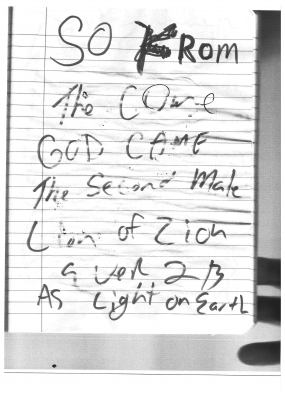 SO FROM
The COWE
GOD CAME
The Second Male
Lion of Zion
a ver 2 B
As Light on Earth